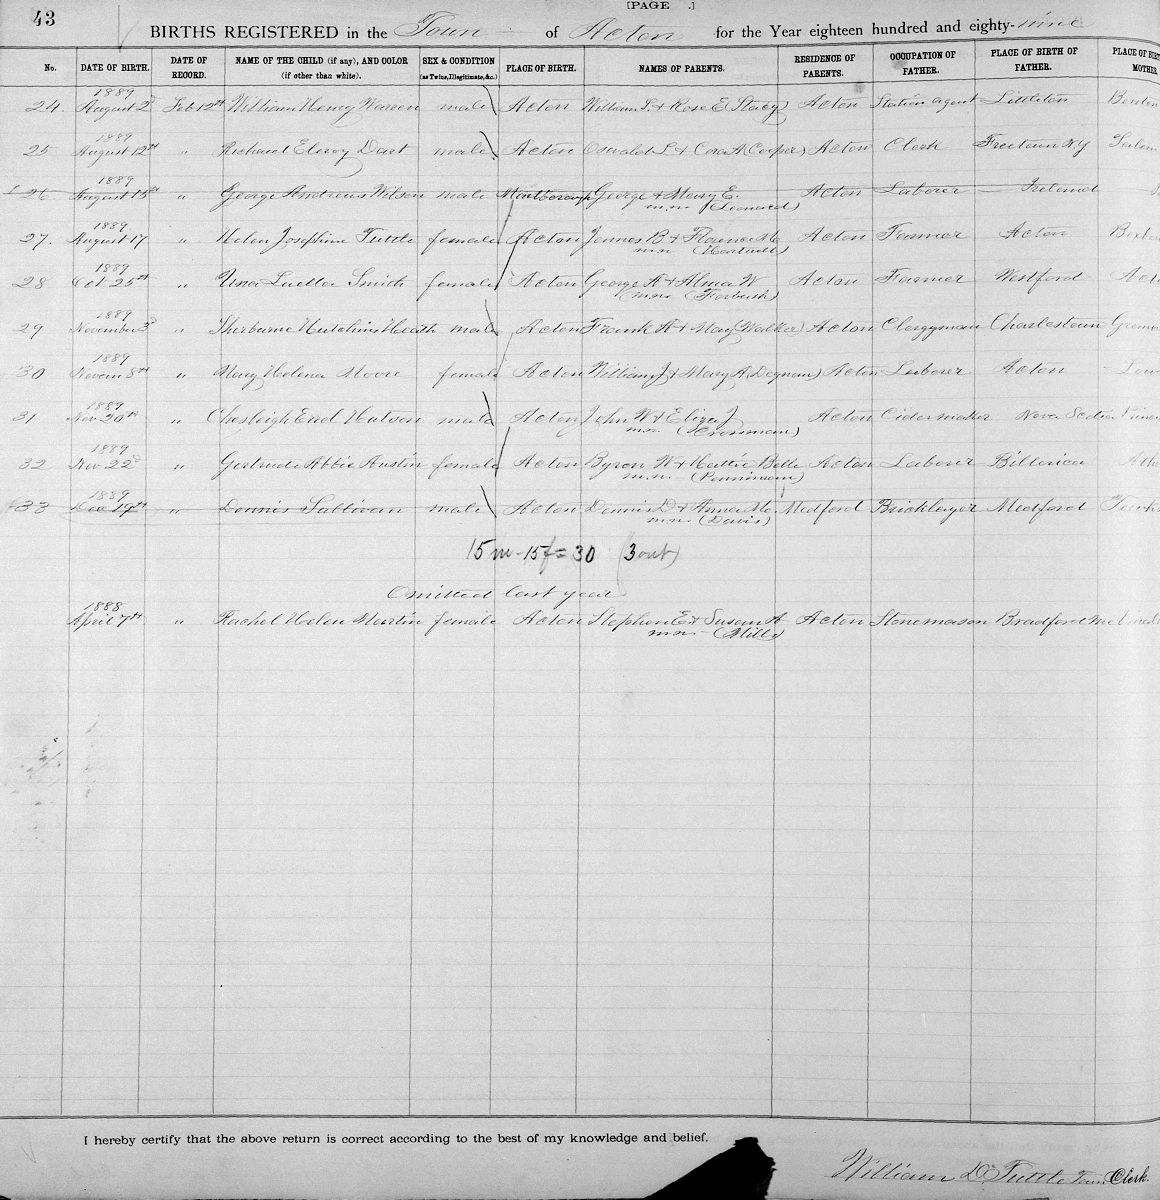 43
[PAGE .]
BIRTHS REGISTERED in the Town of Acton for the Year eighteen hundred and eighty-nine
No. DATE OF BIRTH. DATE OF RECORD. NAME OF THE CHILD (if any), AND COLOR (if other than white). SEX & CONDITION (as Twins, Illegitimate, &c.) PLACE OF BIRTH. NAMES OF PARENTS. RESIDENCE OF PARENTS. OCCUPATION OF FATHER. PLACE OF BIRTH OF FATHER. PLACE OF BIRT MOTHER
1889
24. August 2d Feb 12th William Henry Warren male Acton William S. & Rose E (Stacy) Acton Station agent Littleton
1889
25 August 12th " Richard Elroy Dart male Acton Oswald L & Cora A (Cooper) Acton Clerk Freetown NY Salem
1889
26 August 15th " George Andrews Wilson male Marlborough George & Mary E. Acton Laborer Ireland
m.n. (Leonard)
1889
27. August 17 " Helen Josephine Tuttle female Acton James B & Florence M. Acton Farmer Acton
m.n. (Hartwell)
1889
28 Oct 25th " Una Luella Smith female Acton George A & Alma W Acton Farmer Westford Act
m.n. (Forbush)
1889
29 November 3d " Sherburne Hutchins Heath male Acton Frank A & May (Walker) Acton Clergyman Charlestown
1889
30 Novem 8th " Mary Helena Moore female Acton William J & Mary A (Degnan) Acton Laborer Acton Low
1889
31 Nov 20th " Chesleigh Errol Hutson male Acton John W & Eliza J Acton Cider maker Nova Scotia
m.n. (Crossman)
1889
32 Nov 22d " Gertrude Abbie Austin female Acton Byron W & Hattie Belle Acton Laborer Billerica Ath
m.n. (Penniman)
1889
33 Dec 19th " Dennis Sullivan male Acton Dennis D & Anna M. Medford Bricklayer Medford Tewks
m.n. (Davis)
15m - 15f = 30 (3 out)
Omitted last year
1888
April 7th " Rachel Helen Martin female Acton Stephen E & Susan A Acton Stonemason Bradford Me
m.n. (Mills)
I hereby certify that the above return is correct according to the best of my knowledge and belief.
William D. Tuttle Town Clerk.